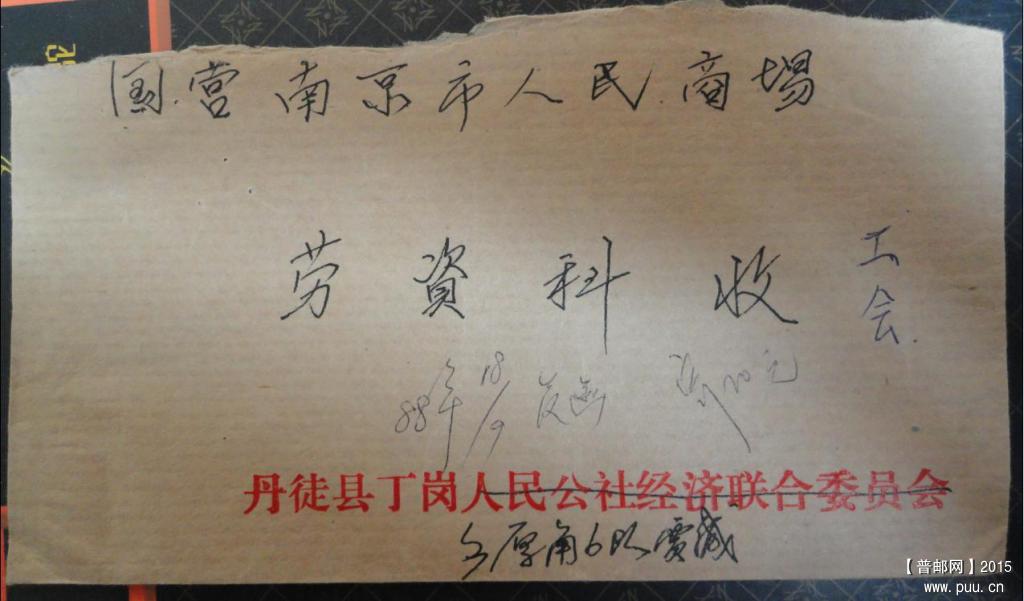 国营南京市人民商場
劳資科收
工会
88年18/9
丹徒县丁岗人民公社经济联合委员会
【普邮网】2015
www.puu.cn